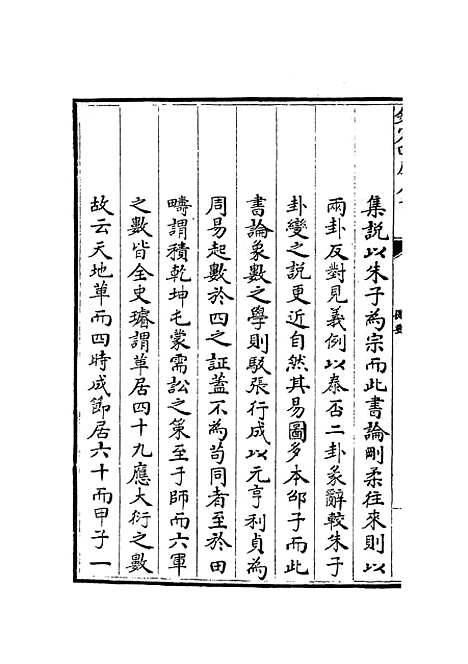 集説以朱子為宗而此書論剛柔往來則以
兩卦反對見義例以泰否二卦彖辭較朱子
卦變之説更近自然其易圖多本邵子而此
書論象數之學則駁張行成以元亨利貞為
周易起數於四之証蓋不為苟同者至於田
疇謂積乾坤屯蒙需訟之策至于師而六軍
之數皆全史璿謂革居四十九應大衍之數
故云天地革而四時成節居六十而甲子一